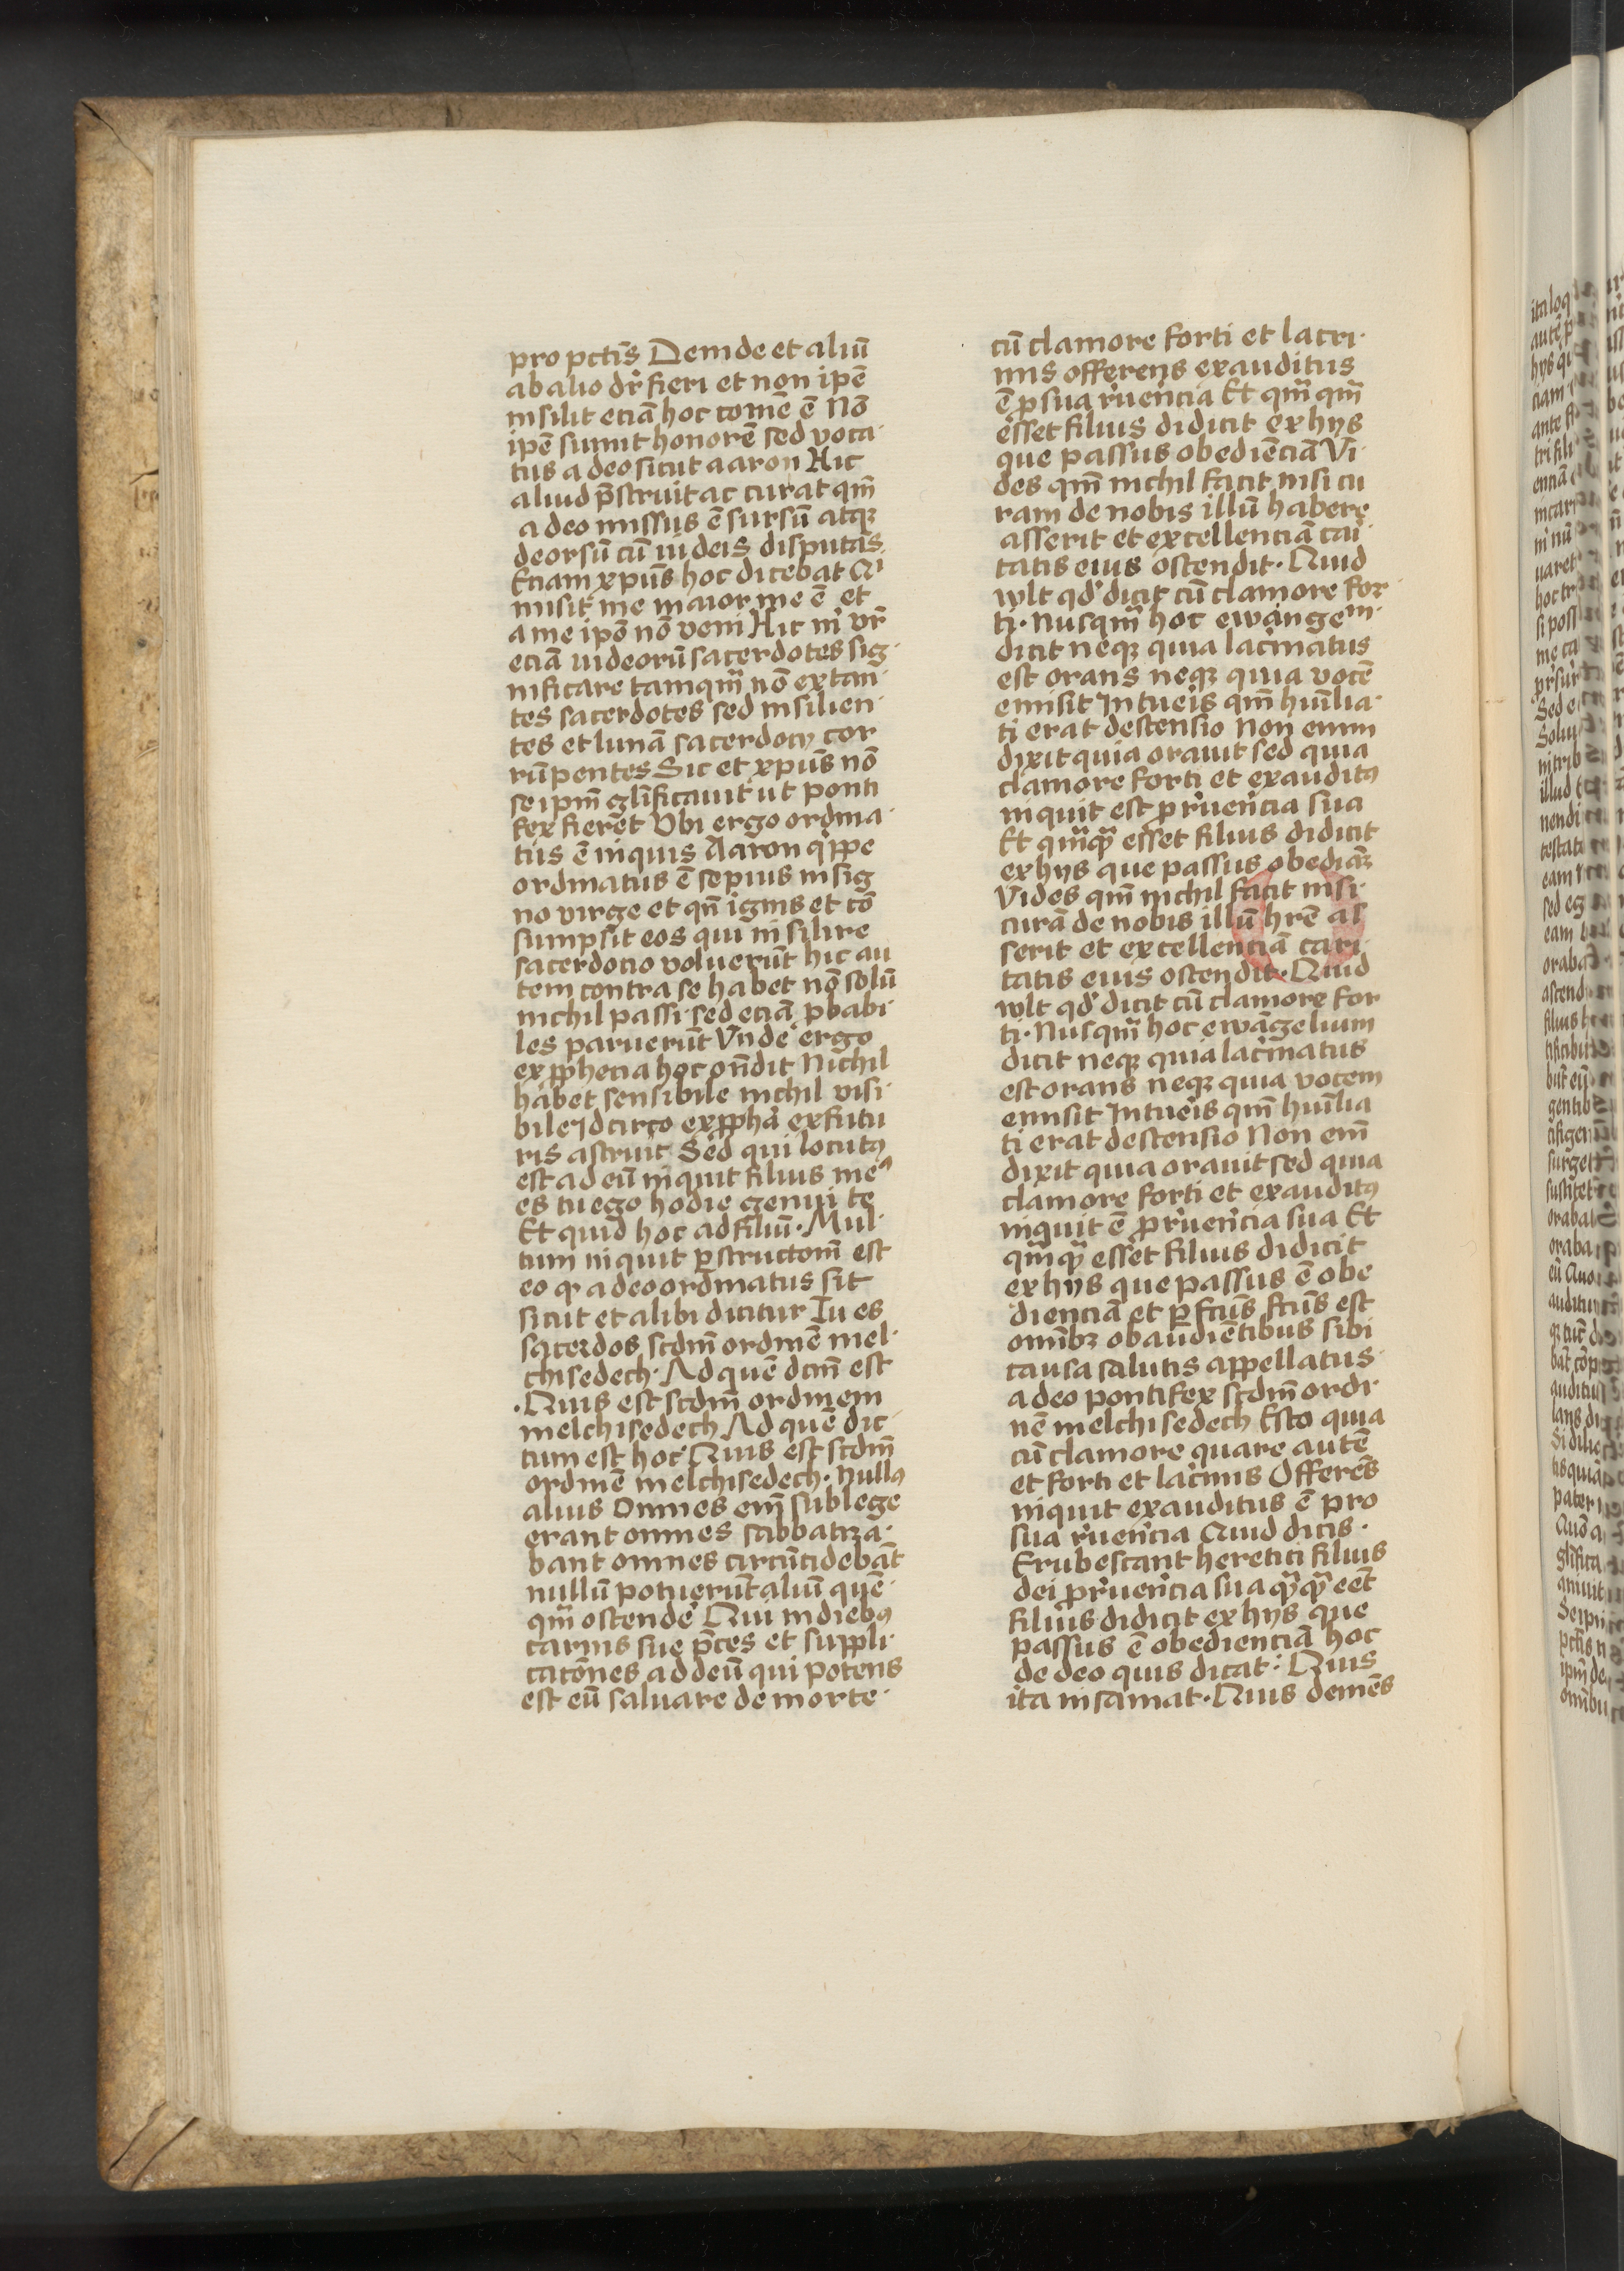 pro pctīs Deinde et aliū
ab alio dr̄ fieri et non ipē
insilit eciā hoc comē ē Nō
ipē sumit honorē sed voca·
tus a deo sicut aaron Hic
aliud p̄struit ac curat qm̄
a deo missus ē sursū atqꝫ
deorsū cū iudeis disputās
Etiam xpūs hoc dicebat Qⁱ
misit me maior me ē et
a me ipō nō veni Hic m̄ vr̄
eciā iudeorū sacerdotes sig·
nificare tamqm̄ nō extan·
tes sacerdotes sed insilien·
tes et lunā sacerdocij cor
rūpentes Sic et xpūs nō
seipm̄ gl̄ificauit ut ponti
fex fieret Vbi ergo ordina·
tus ē inquis Aaron qͥppe
ordinatus ē sepius in sig
no virge et qn̄ ignis et cō
sumpsit eos qui insilire
sacerdocio voluerūt hic au
tem contra se habet nō solū
nichil passi sed eciā ꝓbabi·
les paruerūt Vnde ergo
ex ꝓphecia hoc on̄dit Nichil
habet sensibile nichil visi·
bile Idcirco ex ꝓphā ex futu
ris astruit Sed qui locutꝰ
est ad eū inquit filius meꝰ
es tu ego hodie genui te
Et quid hoc ad filiū· Mul·
tum inquit p̄structom̄ est
eo ꝙ a deo ordinatus sit
sicut et alibi dicitur Tu es
sacerdos scdm̄ ordinē mel·
chisedech· Ad quē dcm̄ est
·Quis est scdm̄ ordinem
melchisedech Ad quē dic·
tum est hoc Quis est scdm̄
ordinē melchisedech· Nullꝰ
alius Omnes em̄ sub lege
erant omnes sabbatiza·
bant omnes circūcidebāt
nullū potuerūt aliū quē·
qm̄ ostende᷒ Qui in diebꝰ
carnis sue p̄ces et suppli·
catōnes ad deū qui potens
est eū saluare de morte·
cū clamore forti et lacri·
mis offerens exauditus
ē ꝓ sua r̄uerīcia Et qm̄ qm̄
esset filius didicit ex hijs
que passus obediēciā Vi·
des qm̄ nichil facit nisi cu
ram de nobis illū habere
asserit et excellenciā cari
tatis eius ostendit· Quid
wlt qd̓ dicit cū clamore for·
ti· Nusqm̄ hoc ewangeᵐ·
dicit neqꝫ quia lac̄matus
est orans neqꝫ quia vocē
emisit Intueis qm̄ hūilia·
ti erat descensio Non enim
dixit quia orauit sed quia
clamore forti et exauditꝰ
inquit est ꝓ r̄uerīcia sua
Et qm̄qꝫ esset filius didicit
ex hijs que passus obediāꝫ
Vides qm̄ nichil facit nisi·
curā de nobis illū hr̄e as
serit et excellenciā cari·
tatis eius ostendit· Quid
wlt qd̓ dicit cū clamore for
ti· Nusqm̄ hoc ewāgelium
dicit neqꝫ quia lac̄matus
est orans neqꝫ quia vocem
emisit Intueis qm̄ hūilia
ti erat descensio Non em̄
dixit quia orauit sed quia
clamore forti et exauditꝰ
inquit ē ꝓ r̄uerīcia sua Et
qm̄qꝫ esset filius didicit
ex hijs que passus ē obe
dienciā et ꝑfctūs fctūs est
omībꝫ obaudiētibus sibi
causa salutis appellatus·
a deo pontifex scdm̄ ordi·
nē melchisedech Esto quia
cū clamore quare autē
et forti et lac̄mis Offerēs
inquit exauditus ē pro
sua r̄uerīcia Quid dicis·
Erubescant heretici filius
dei ꝓ r̄uerīcia sua qꝫqꝫ eēt
filius didicit ex hijs que
passus ē obedienciā hoc
de deo quis dicat· Quis
ita insaniat· Quis demēs